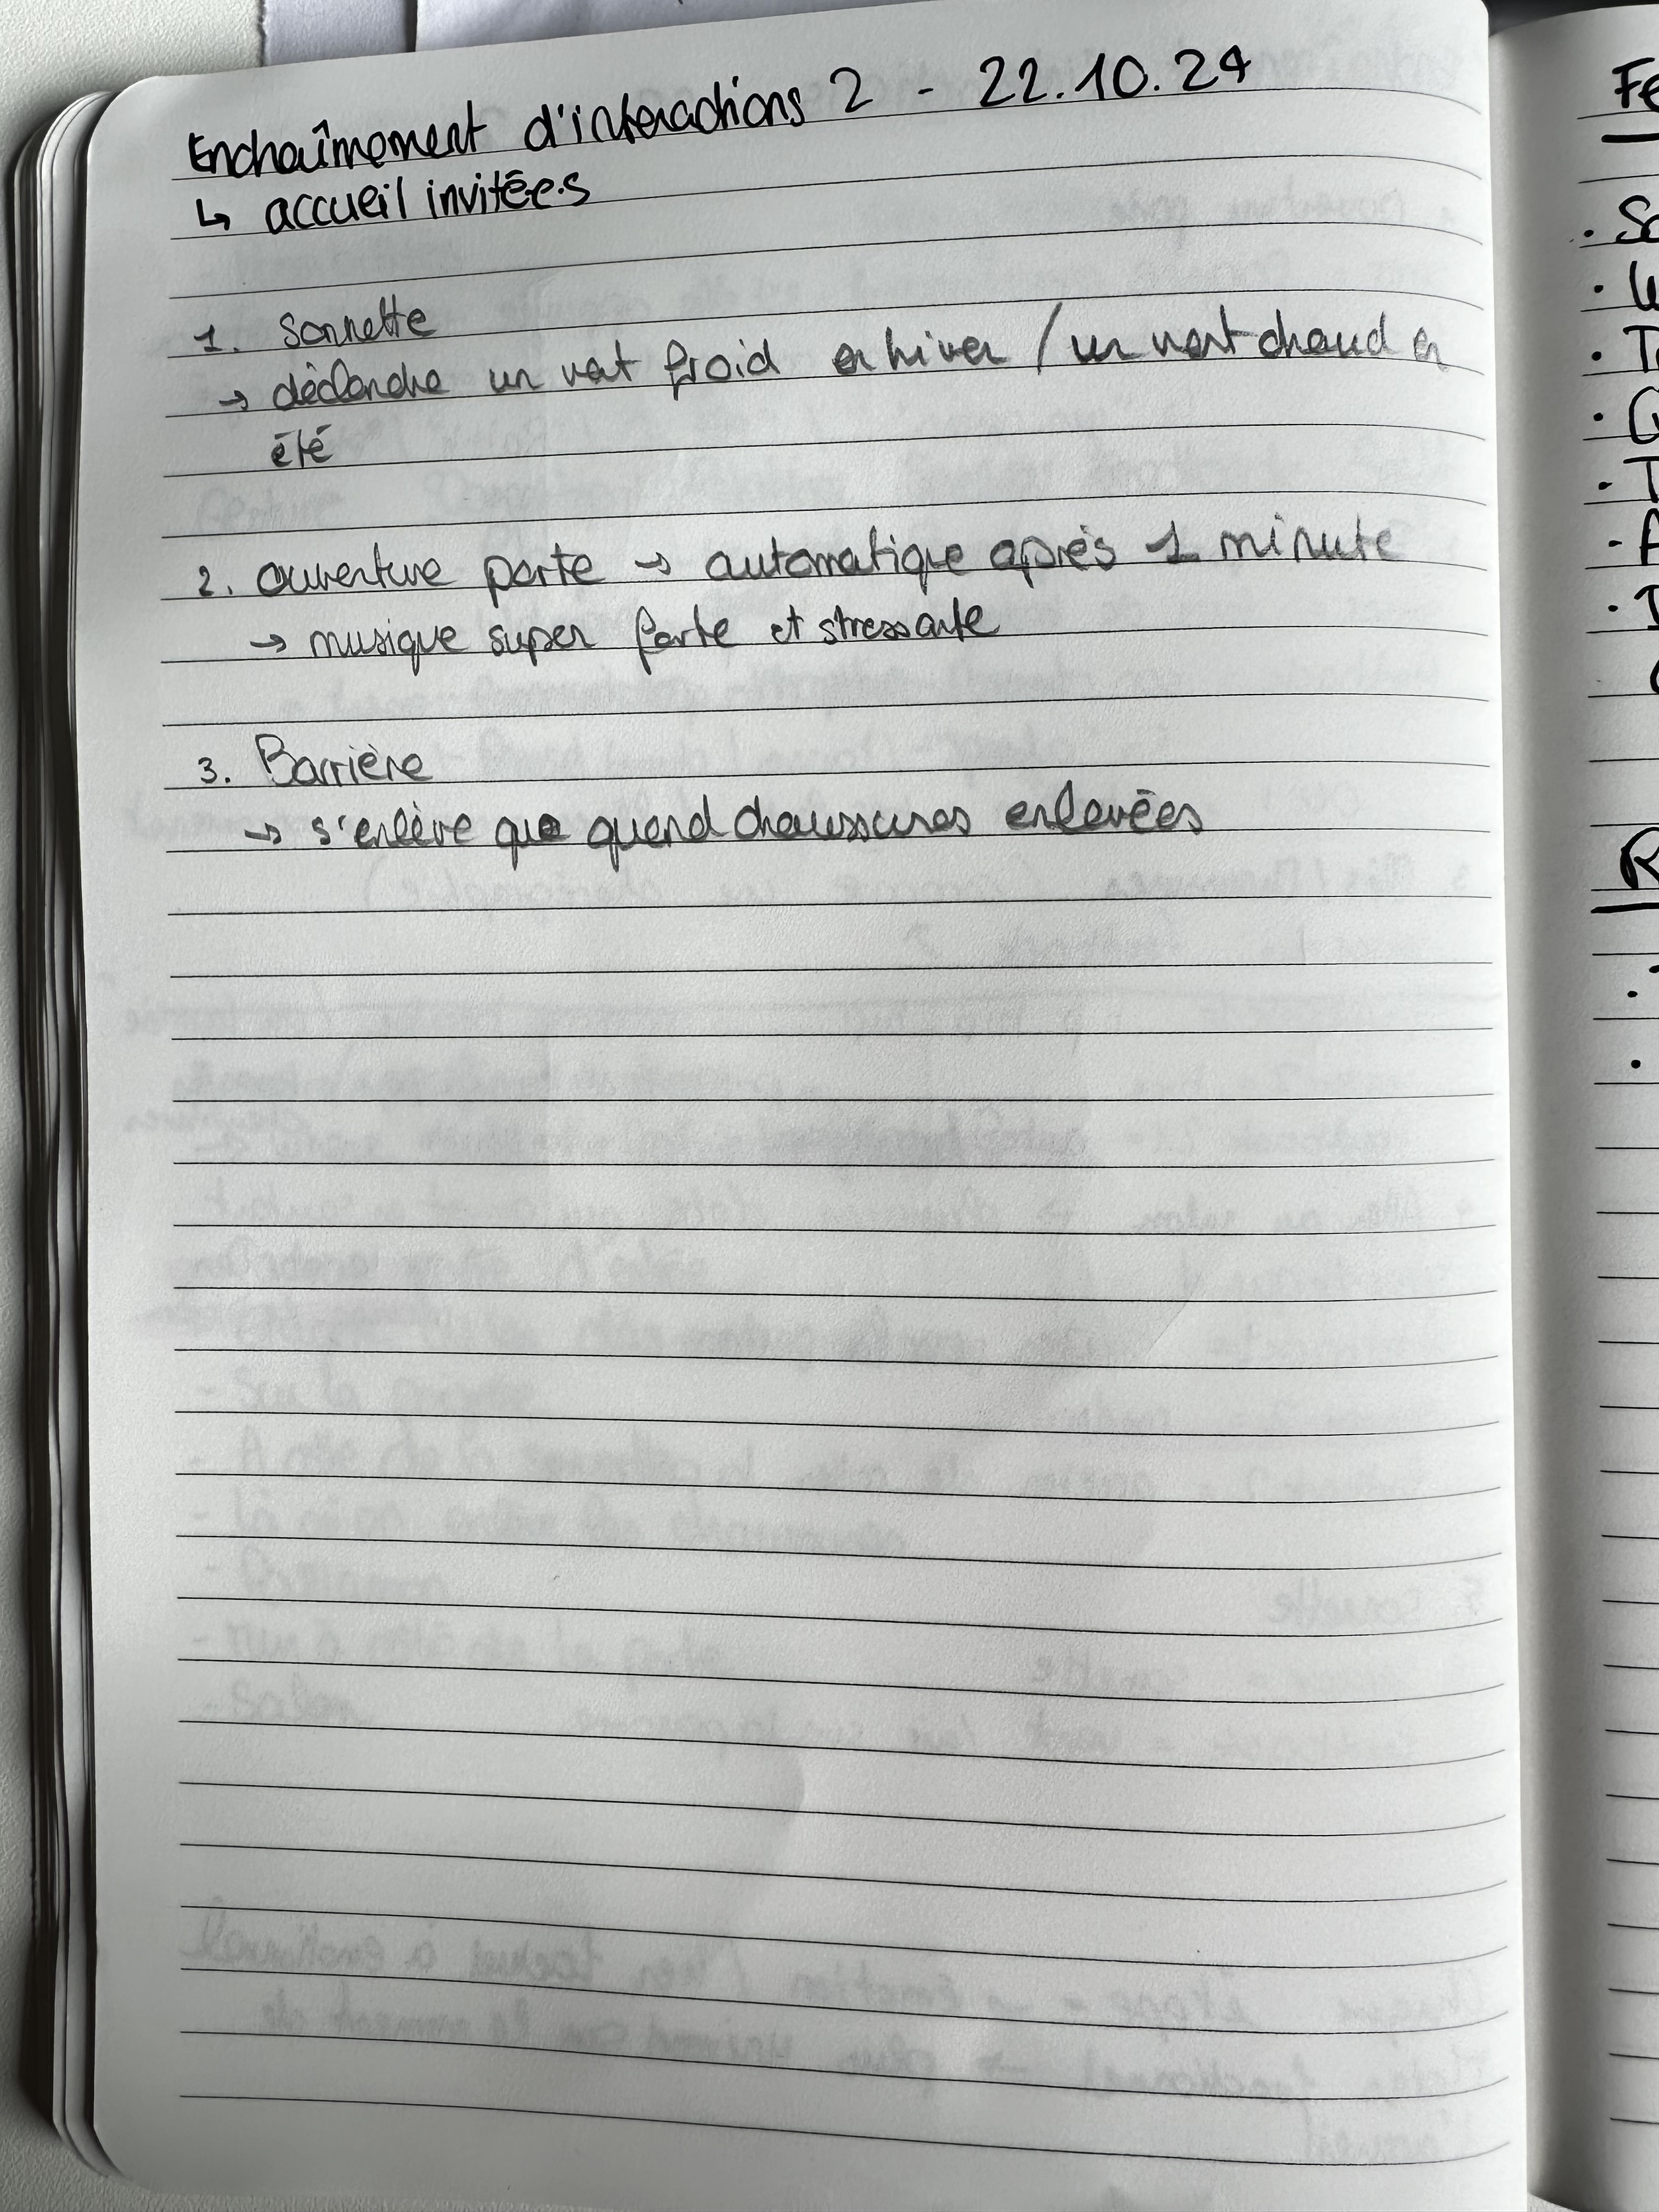 Enchaînement d'interactions 2 - 22.10.24
↳ accueil invité·e·s
1. Sonnette
→ déclenche un vent froid en hiver / un vent chaud en
été
2. ouverture porte → automatique après 1 minute
→ musique super forte et stressante
3. Barrière
→ s'enlève que quand chaussures enlevées